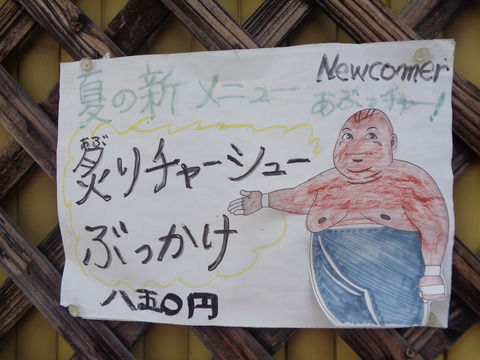 夏の新メニュー
Newcomer
あぶっチャー!
あぶ
炙りチャーシュー
ぶっかけ
八五〇円